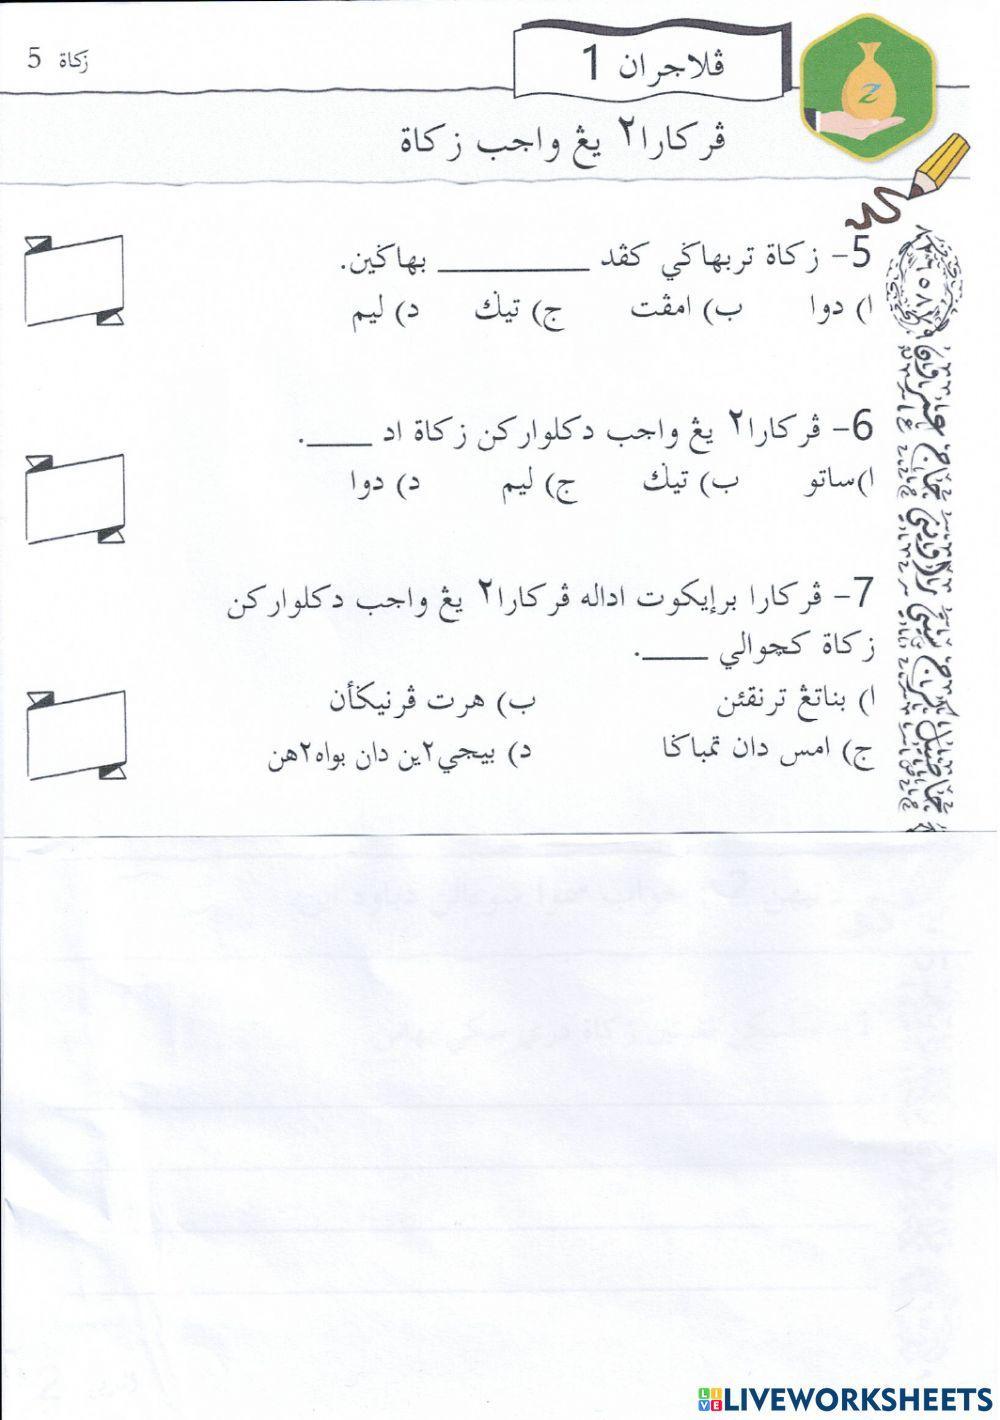 زكاة 5
ڤلاجران 1
ڤركارا٢ يڠ واجب زكاة
5- زكاة تربهاڬي كڤد ________ بهاڬين.
ا) دوا ب) امڤت ج) تيڬ د) ليم
6- ڤركارا٢ يڠ واجب دكلواركن زكاة اد ____.
ا)ساتو ب) تيڬ ج) ليم د) دوا
7- ڤركارا برإيكوت اداله ڤركارا٢ يڠ واجب دكلواركن
زكاة كچوالي ____.
ا) بناتڠ ترنقئن ب) هرت ڤرنيڬأن
ج) امس دان تمباڬا د) بيجي٢ين دان بواه٢هن
LIVEWORKSHEETS